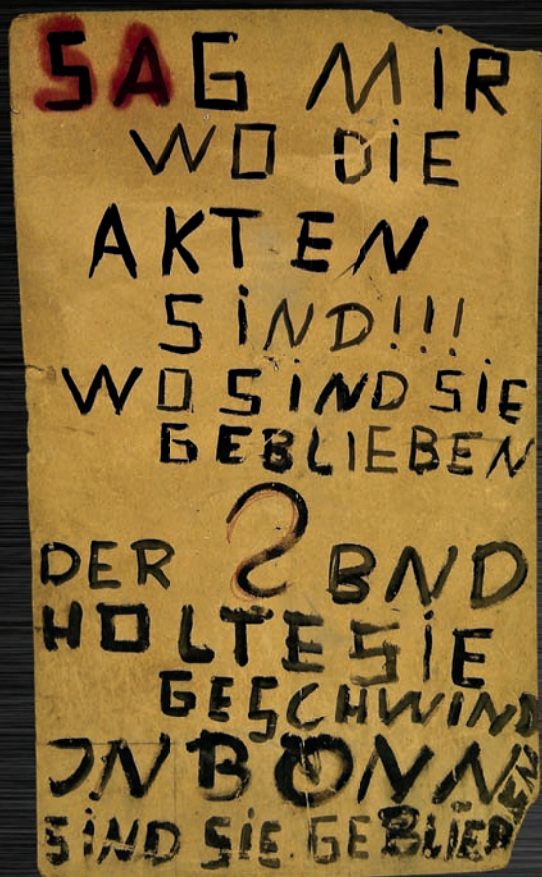 SAG MIR
WO DIE
AKTEN
SIND!!!
WO SIND SIE
GEBLIEBEN
?
DER BND
HOLTE SIE
GESCHWIND
IN BONN
SIND SIE GEBLIEBEN